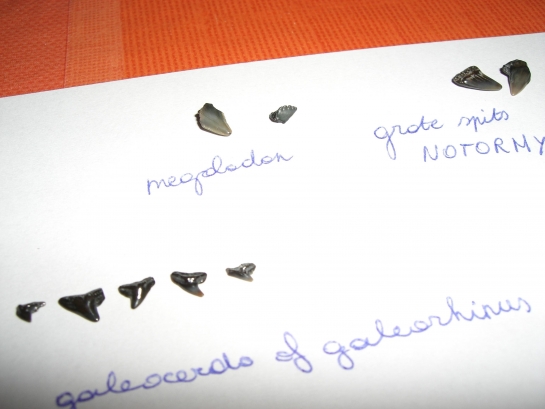 megalodon
grote spits
NOTORMY
galeocerdo of galeorhinus